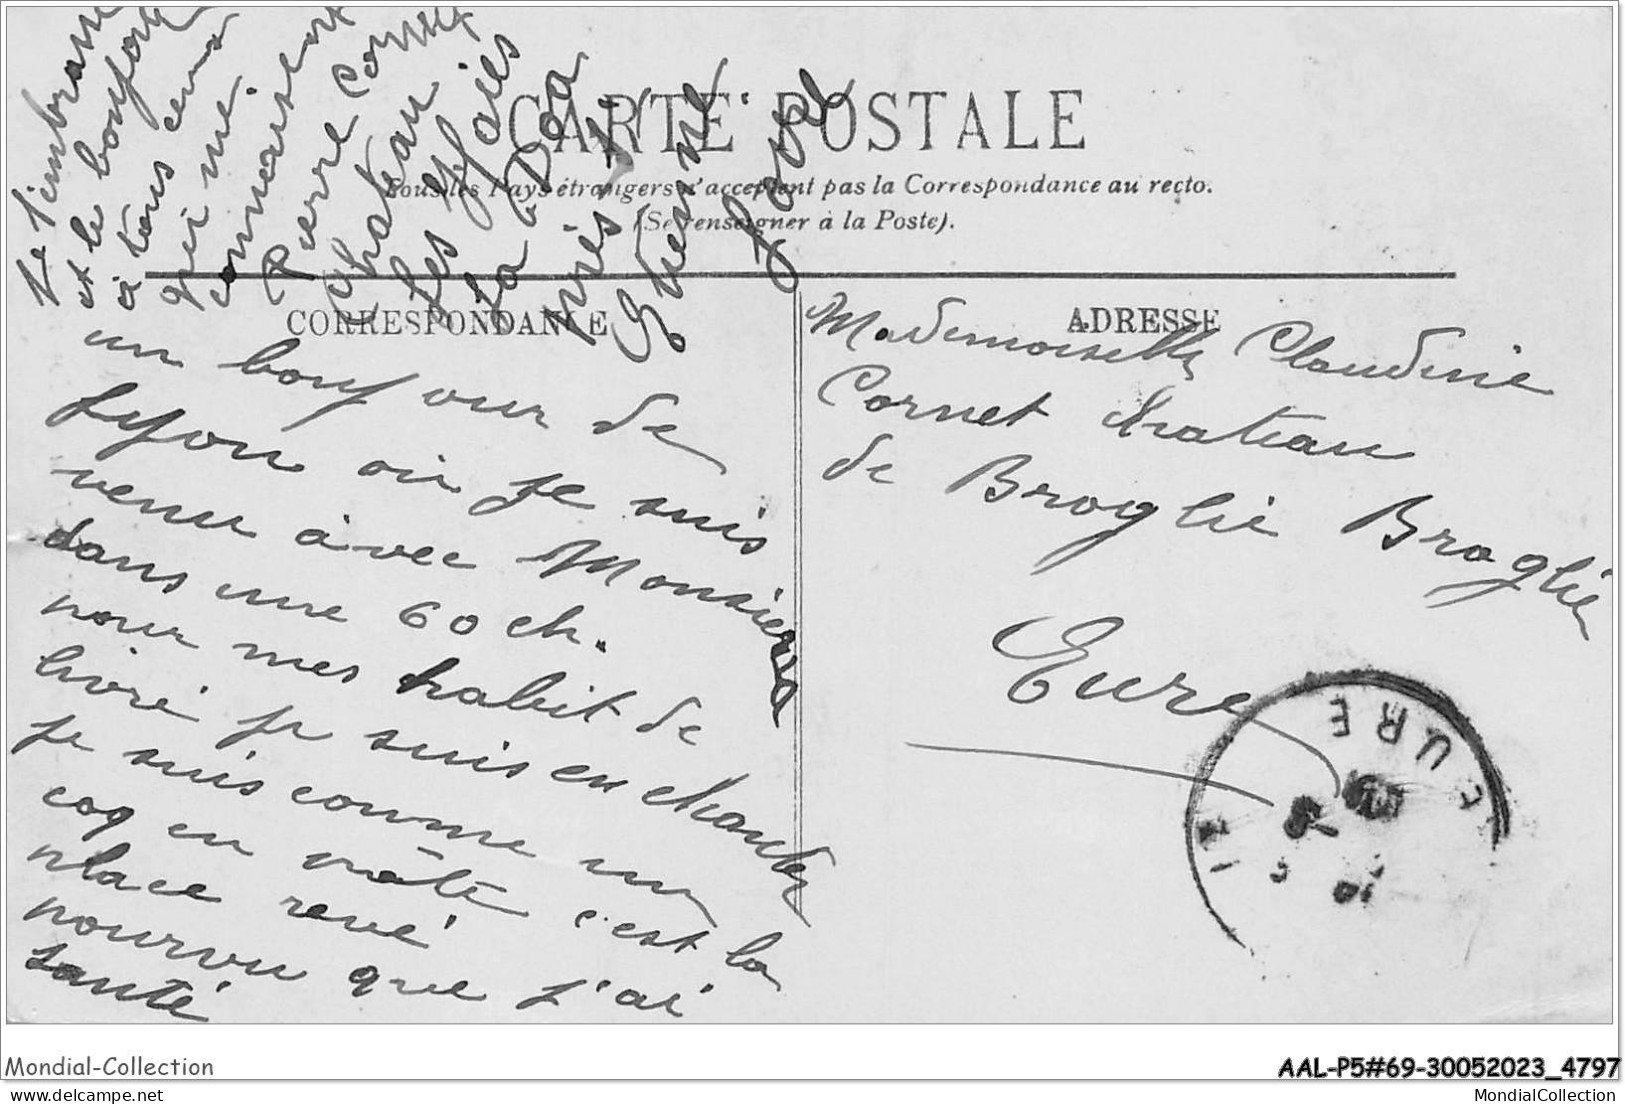 CARTE POSTALE
Tous les Pays étrangers n'acceptent pas la Correspondance au recto.
(Se renseigner à la Poste).
CORRESPONDANCE
ADRESSE
un bonjour de
Lyon où je suis
venu àvec Monsieur
dans une 60 ch.
pour mes habit de
livré je suis en
je suis comme un
coq en pâté c'est la
place revé
pourvu que j'ai
santé
et le bonjour
à tous ceux
qui me
connaissent
Pierre
Château
Les
La
près
Etienne
Mademoiselle Claudine
Cornet chateau
de Broglie Broglie
Eure
EURE
Mondial-Collection
AAL-P5#69-30052023_4797
delcampe.net
MondialCollection